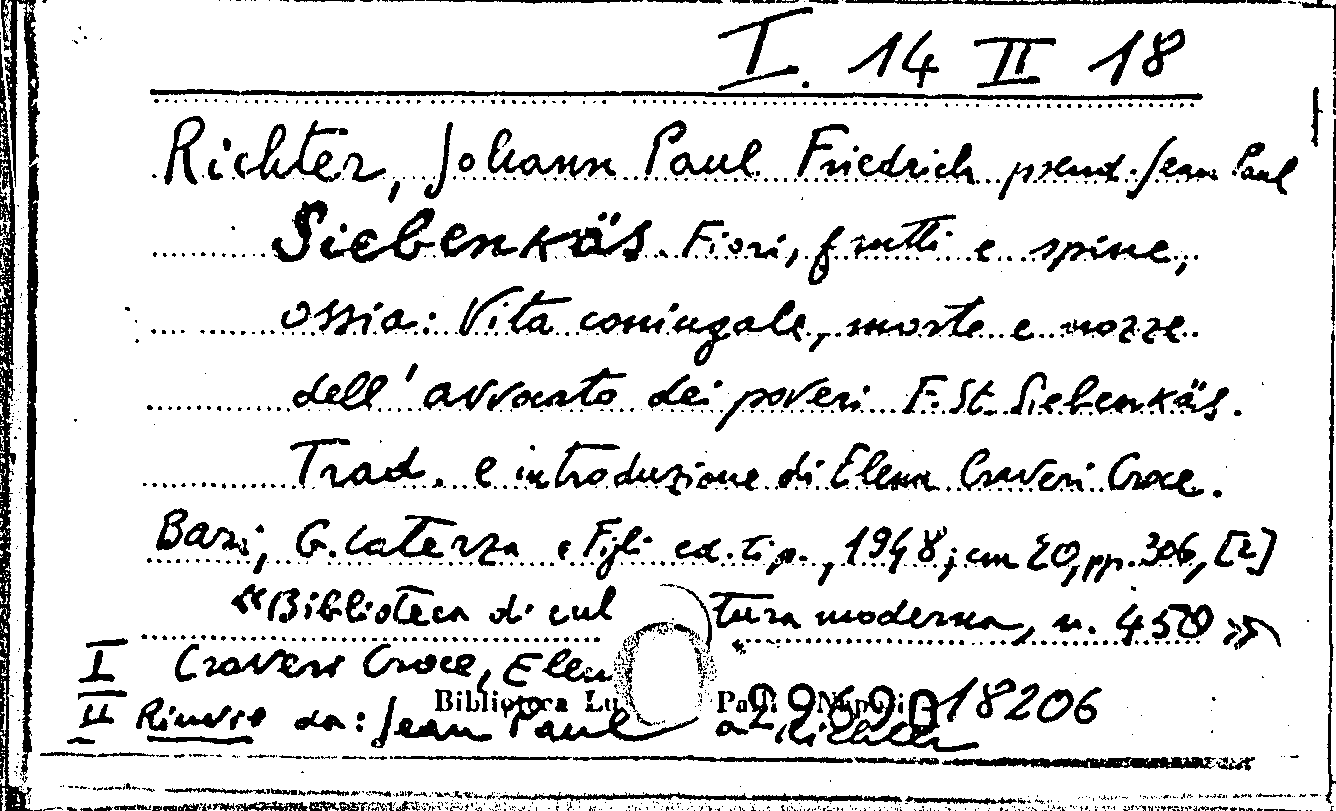 I. 14 II 18
Richter, Johann Paul Friedrich pseud. Jean Paul
Siebenkäs. Fiori, frutti e spine,
ossia: Vita coniugale, morte e nozze
dell'avvocato dei poveri F. St. Siebenkäs.
Trad. e introduzione di Elena Craveri Croce.
Bari, G. Laterza e Figli ed. tip., 1948; cm 20, pp. 306, [2]
«Biblioteca di cultura moderna, n. 450»
I Craveri Croce, Elena
Biblioteca Lu Pa Napoli 18206
II Rinvio da: Jean Paul a Richter